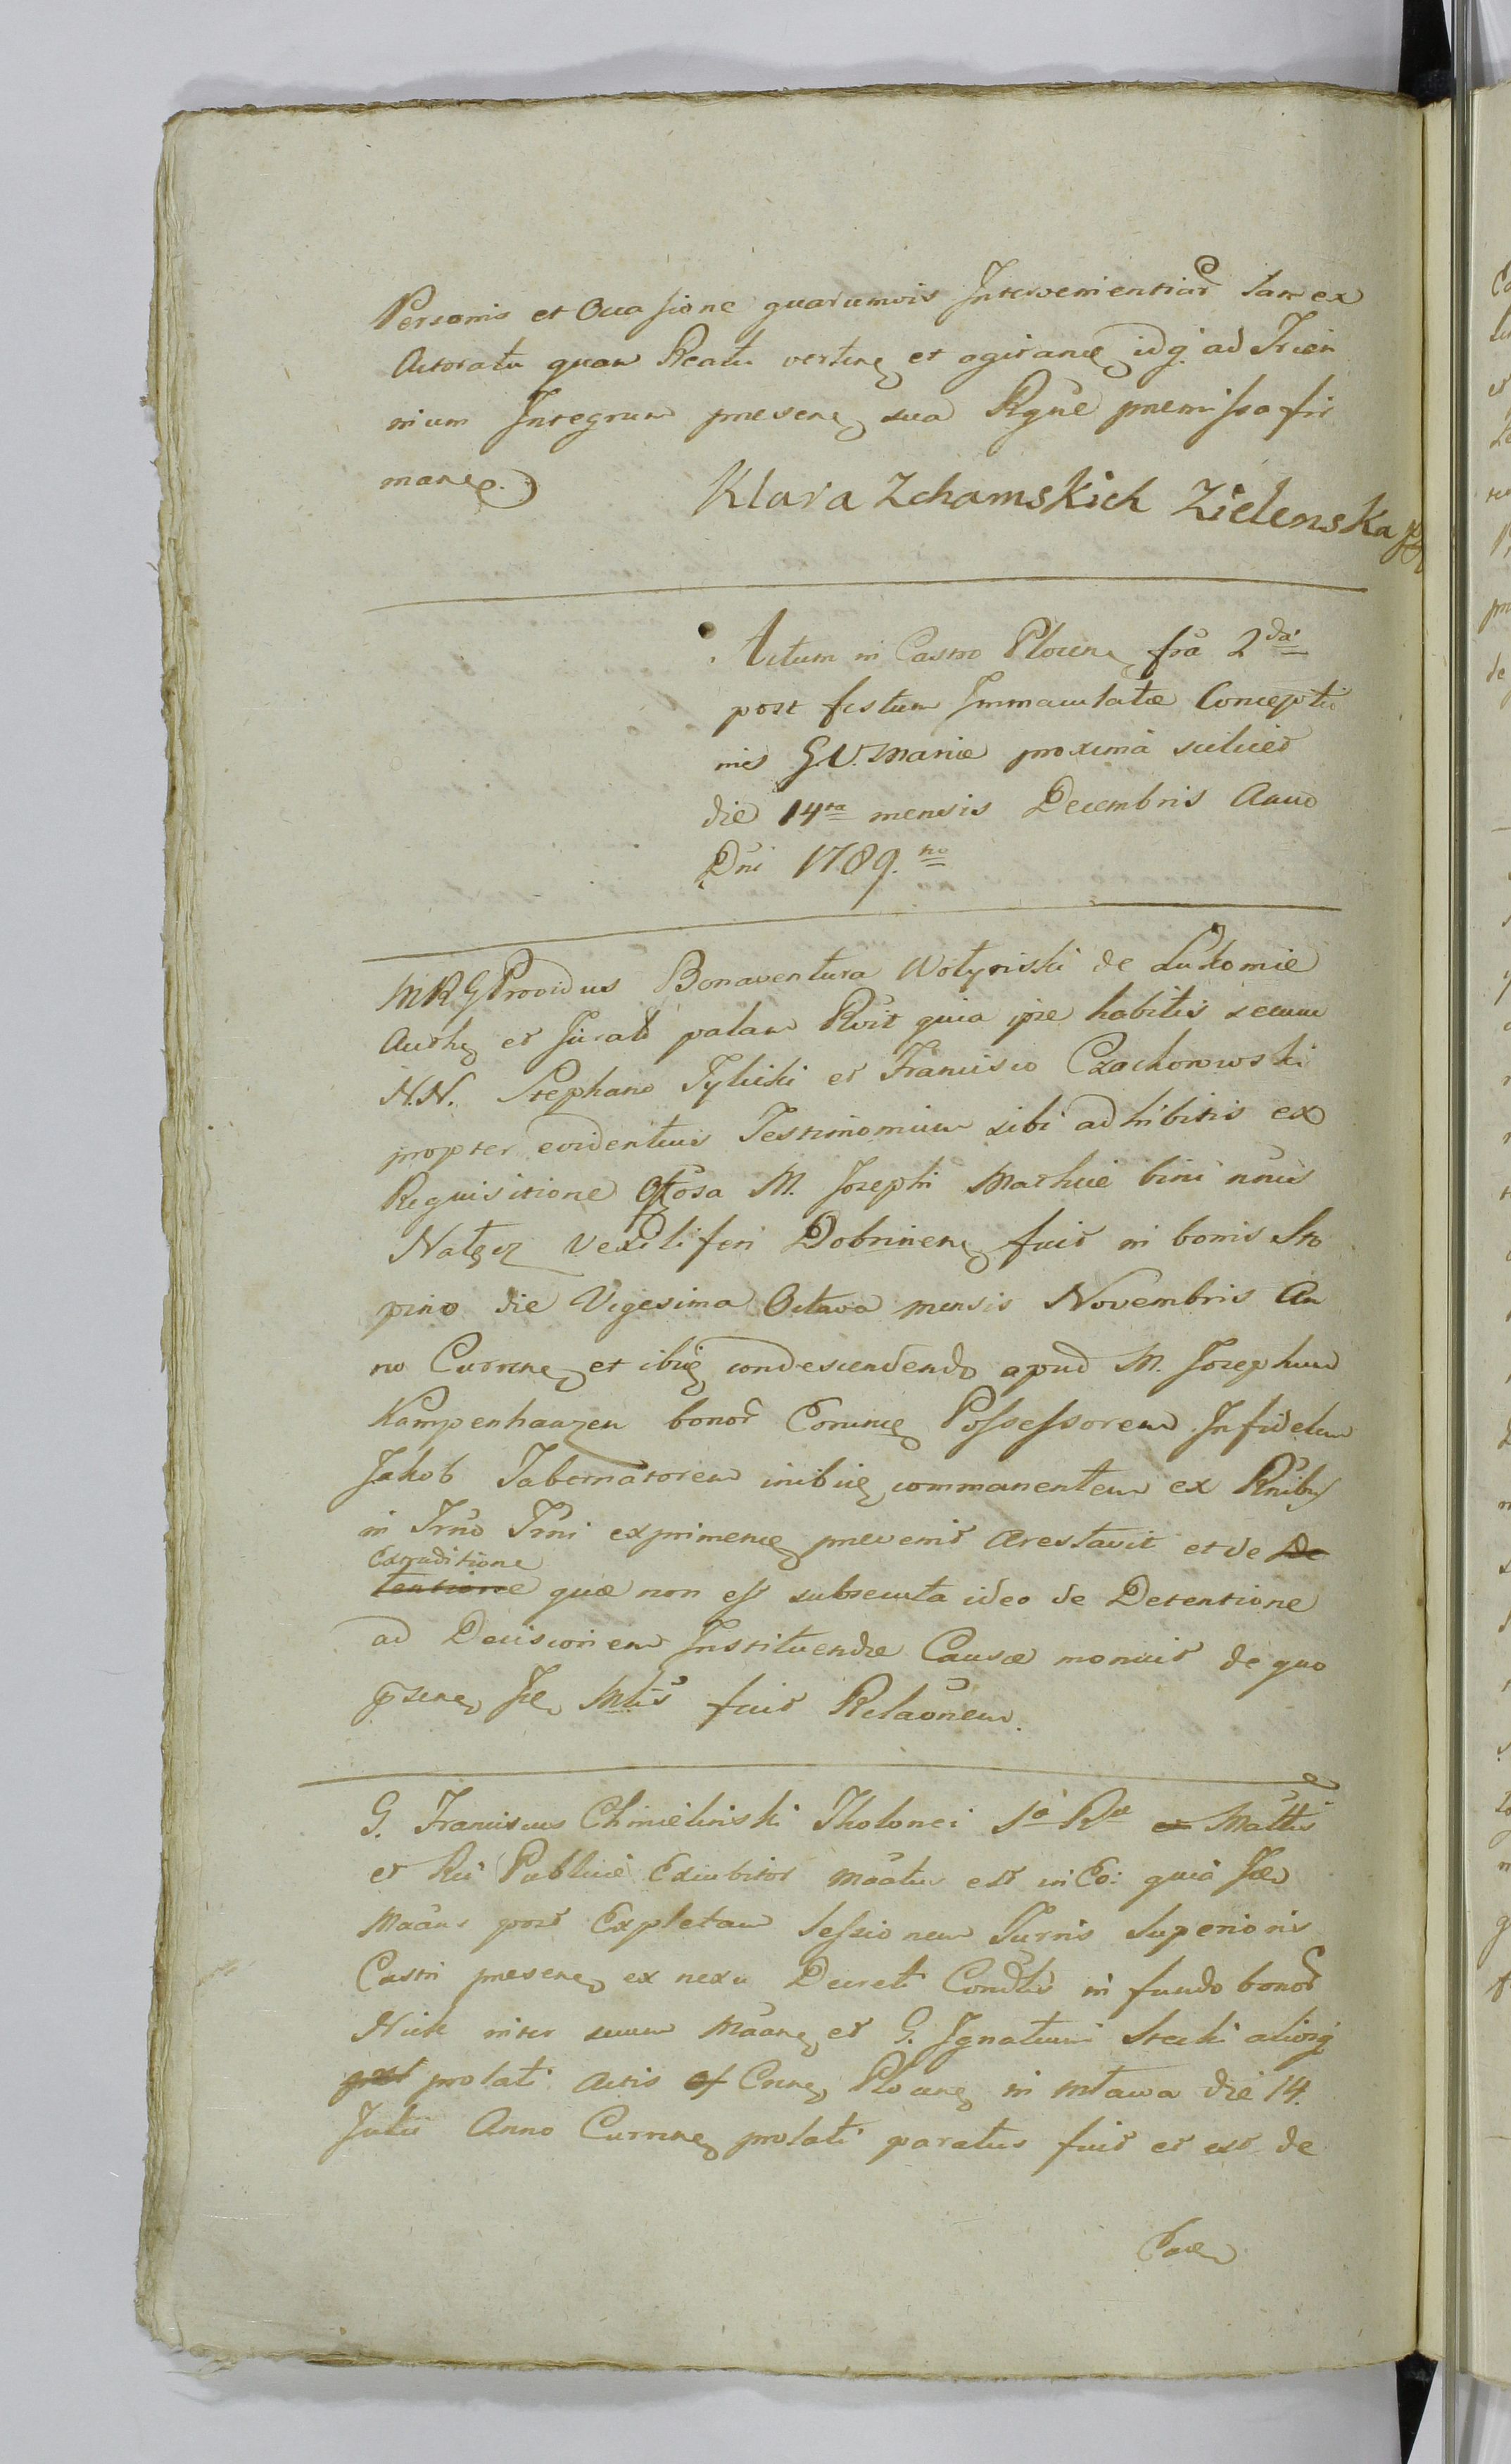 Personis et Occasione quarumvis Intervenientiar tam ex
Actoratu quam Reatu verten et agitan idq ad Trien
nium Integrum presen sua Rgne premissa fir
man
Klara Zchamskich Zielenska
Actum in Castro Plocen fra 2da
post festum Immaculatæ Conceptio
nis G.V. Mariæ proxima scilicet
die 14ta mensis Decembris Anno
Dni 1789.no
MRG Providus Bonaventura Wołyński de Lukomie
Auth et Jurat palam Rvit quia ipse habitis secum
N.N. Stephano Tylicki et Francisco Czachorowski
propter evidentius Testimonium sibi adhibitis ex
Requisitione M. Josephi Mathie bini nnis
Nałęcz Vexiliferi Dobrinen fuit in bonis Sto
pino die Vigesima Octava mensis Novembris An
no Curren et ibi condescendendo apud M. Josephum
Kampenhaazen bonor Possessorem Infidelem
Jakob Tabernatorem inibi commanentem ex Rnibs
in Trno Trni exprimen prevenit Arestavit et de De
Extraditione
tentione quæ non est subsecuta ideo de Detentione
ad Decisionem Instituendæ Causæ monuit de quo
psen fuit Relaonem.
G. Franciscus Chmieliński Tholonei S R Mattis
et Rei Publicæ Exubitor maatus est in Eo: quia
Maans post Expletam Sessionem Turris Superioris
Castri presen ex nexu Decreti Condlis in fundo bonor
Nick inter suum Maan et G. Ignatium Stecki alior
post prolati Actis Of Cren Plocen in Mlawa die 14.
Julii Anno Curren prolati paratus fuit et est de